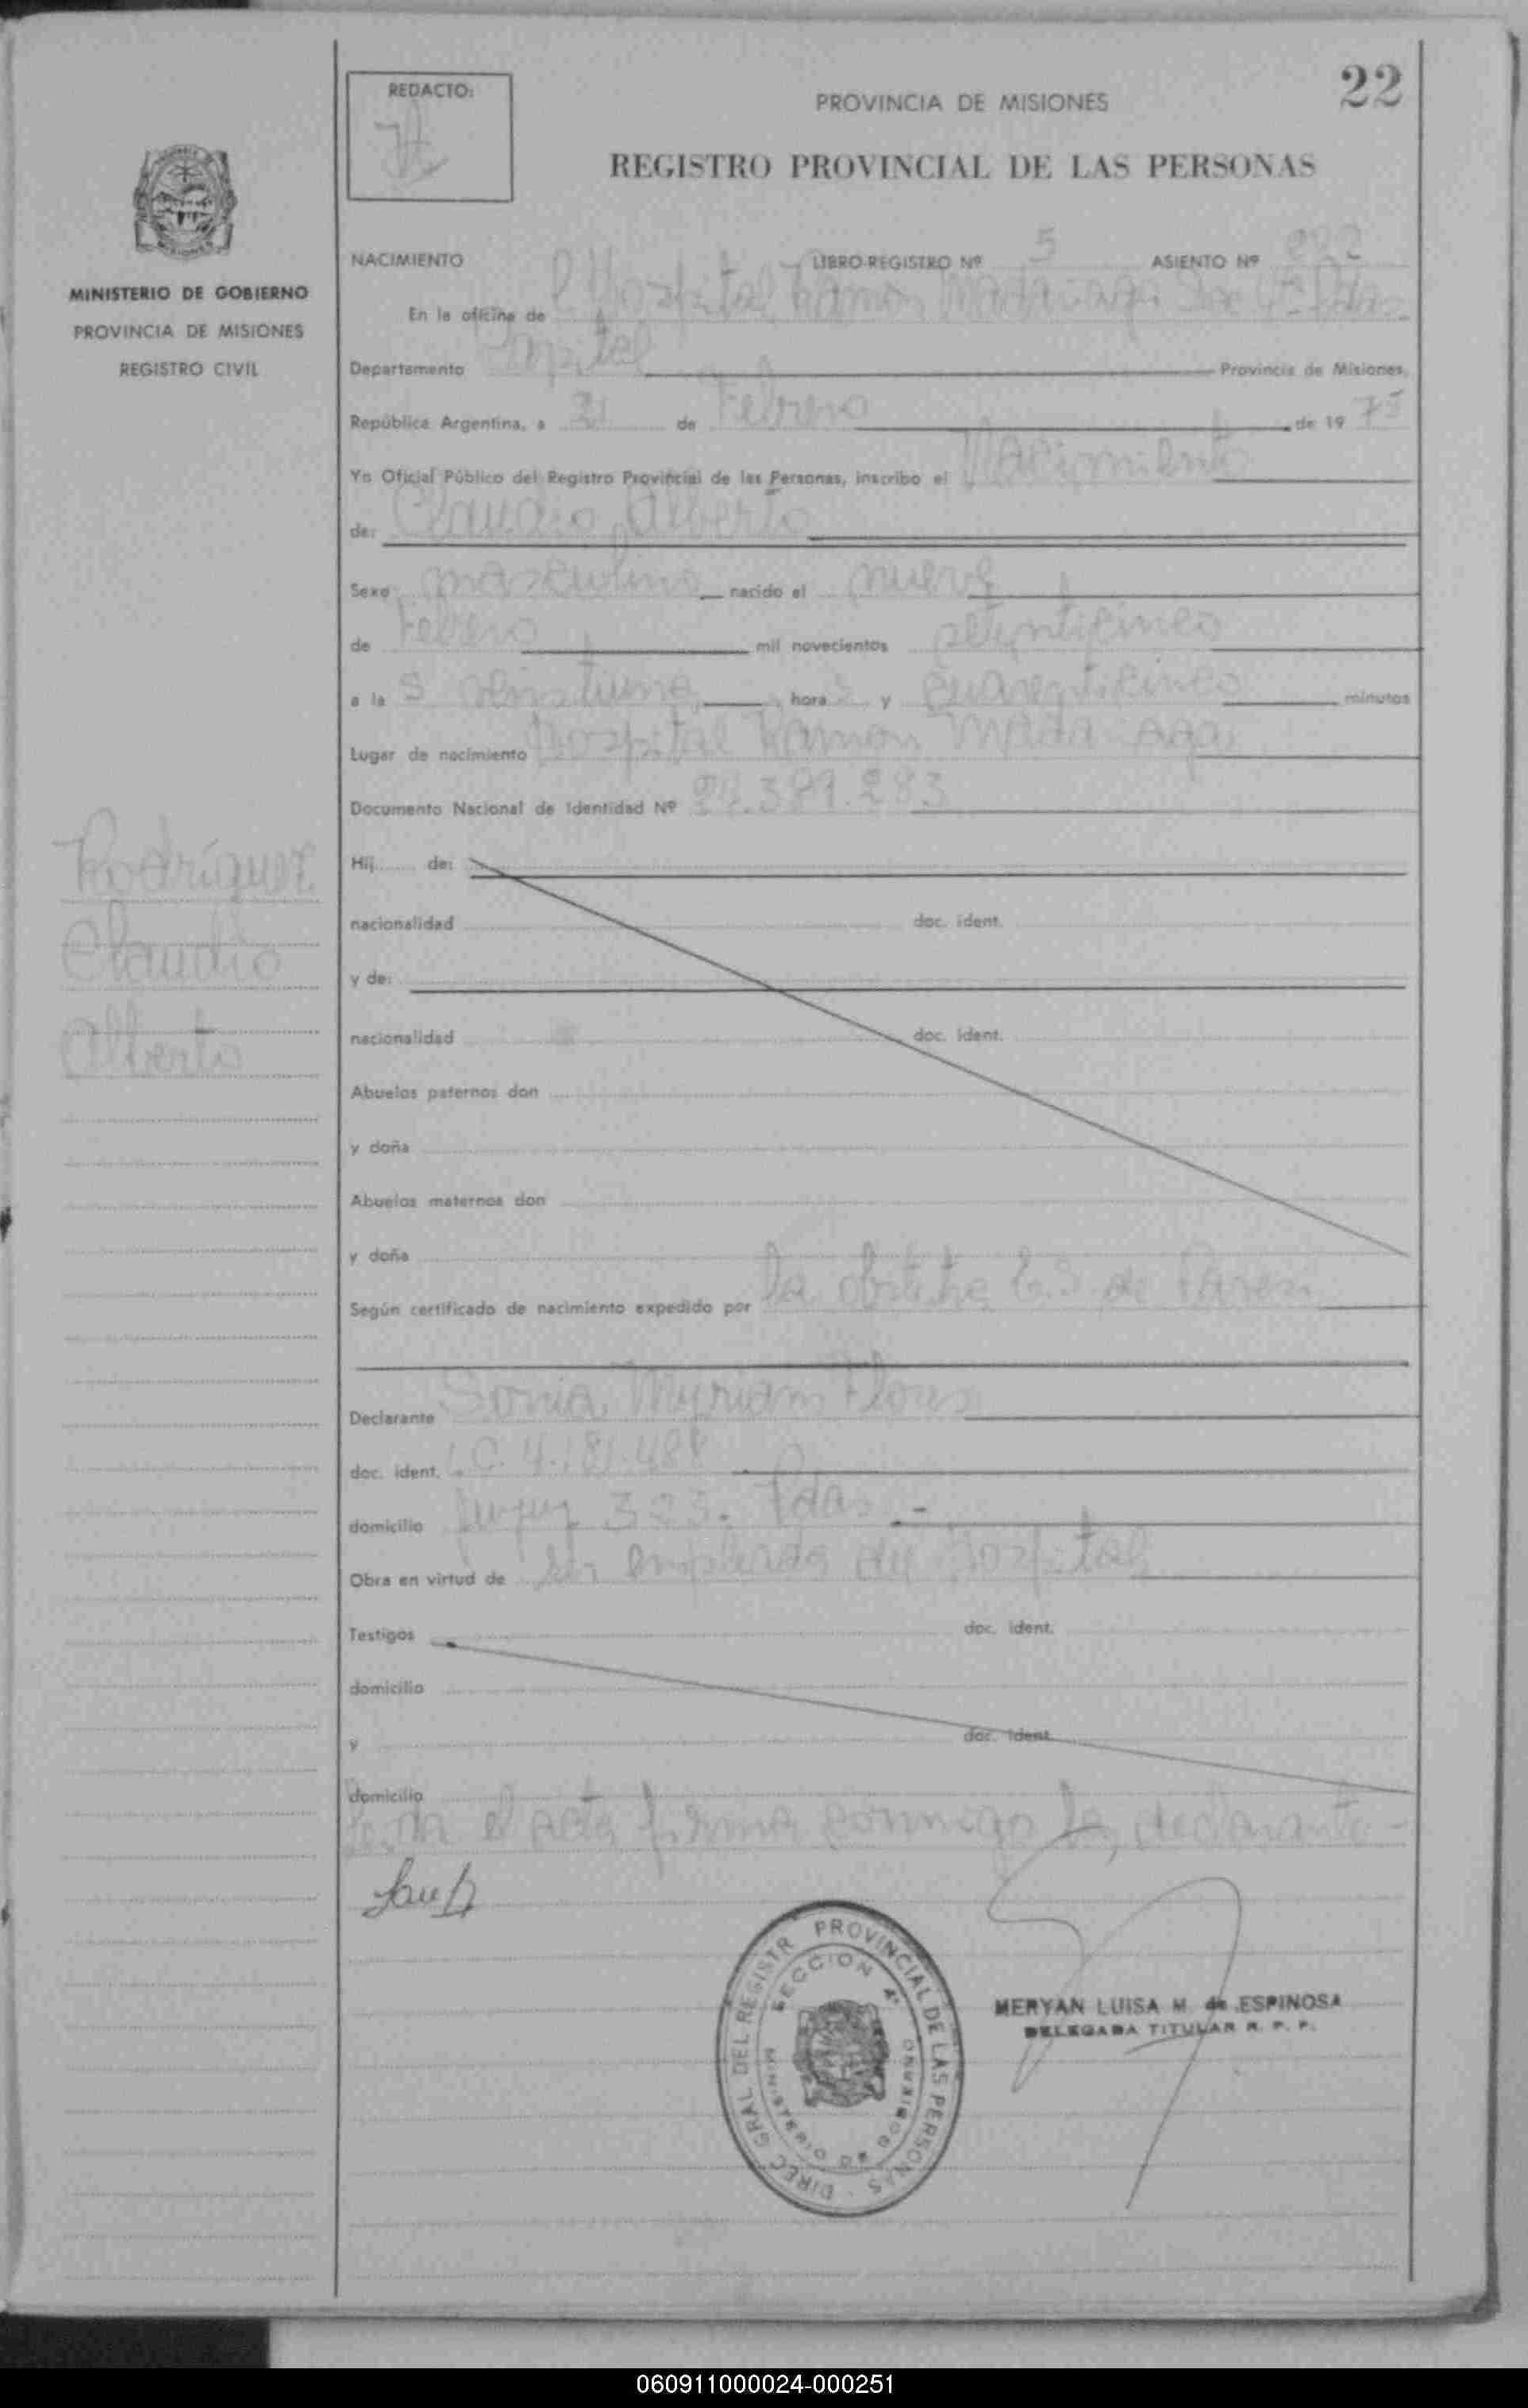 22
REDACTO:
PROVINCIA DE MISIONES
REGISTRO PROVINCIAL DE LAS PERSONAS
MINISTERIO DE GOBIERNO
PROVINCIA DE MISIONES
REGISTRO CIVIL
NACIMIENTO LIBRO-REGISTRO Nº 5 ASIENTO Nº 222
En la oficina de Hospital Ramón Madariaga Sec 4ª Pdas
Departamento Capital Provincia de Misiones,
República Argentina, a 21 de Febrero de 19 75
Yo Oficial Público del Registro Provincial de las Personas, inscribo el Nacimiento
de: Claudio Alberto
Sexo masculino nacido el nueve
de Febrero mil novecientos setenticinco
a la s veintiuna hora s y cuarenticinco minutos
Lugar de nacimiento Hospital Ramon Madariaga
Documento Nacional de Identidad Nº 24.381.283
Rodríguez
Claudio
Alberto
Hij de:
nacionalidad doc. ident.
y de:
nacionalidad doc. ident.
Abuelos paternos don
y doña
Abuelos maternos don
y doña
Según certificado de nacimiento expedido por la obstetra de
Declarante Sonia Myriam Flores
doc. ident. L.C. 4.181.488
domicilio Jujuy 323. Pdas -
Obra en virtud de ser empleada del Hospital
Testigos doc. ident.
domicilio
y doc. ident.
domicilio
Leída el acta firma conmigo la declarante -
DIREC GRAL DEL REGISTR PROVINCIAL DE LAS PERSONAS
SECCION 4ª
MINISTERIO DE GOBIERNO
MERYAN LUISA M. de ESPINOSA
DELEGADA TITULAR R. P. P.
060911000024-000251